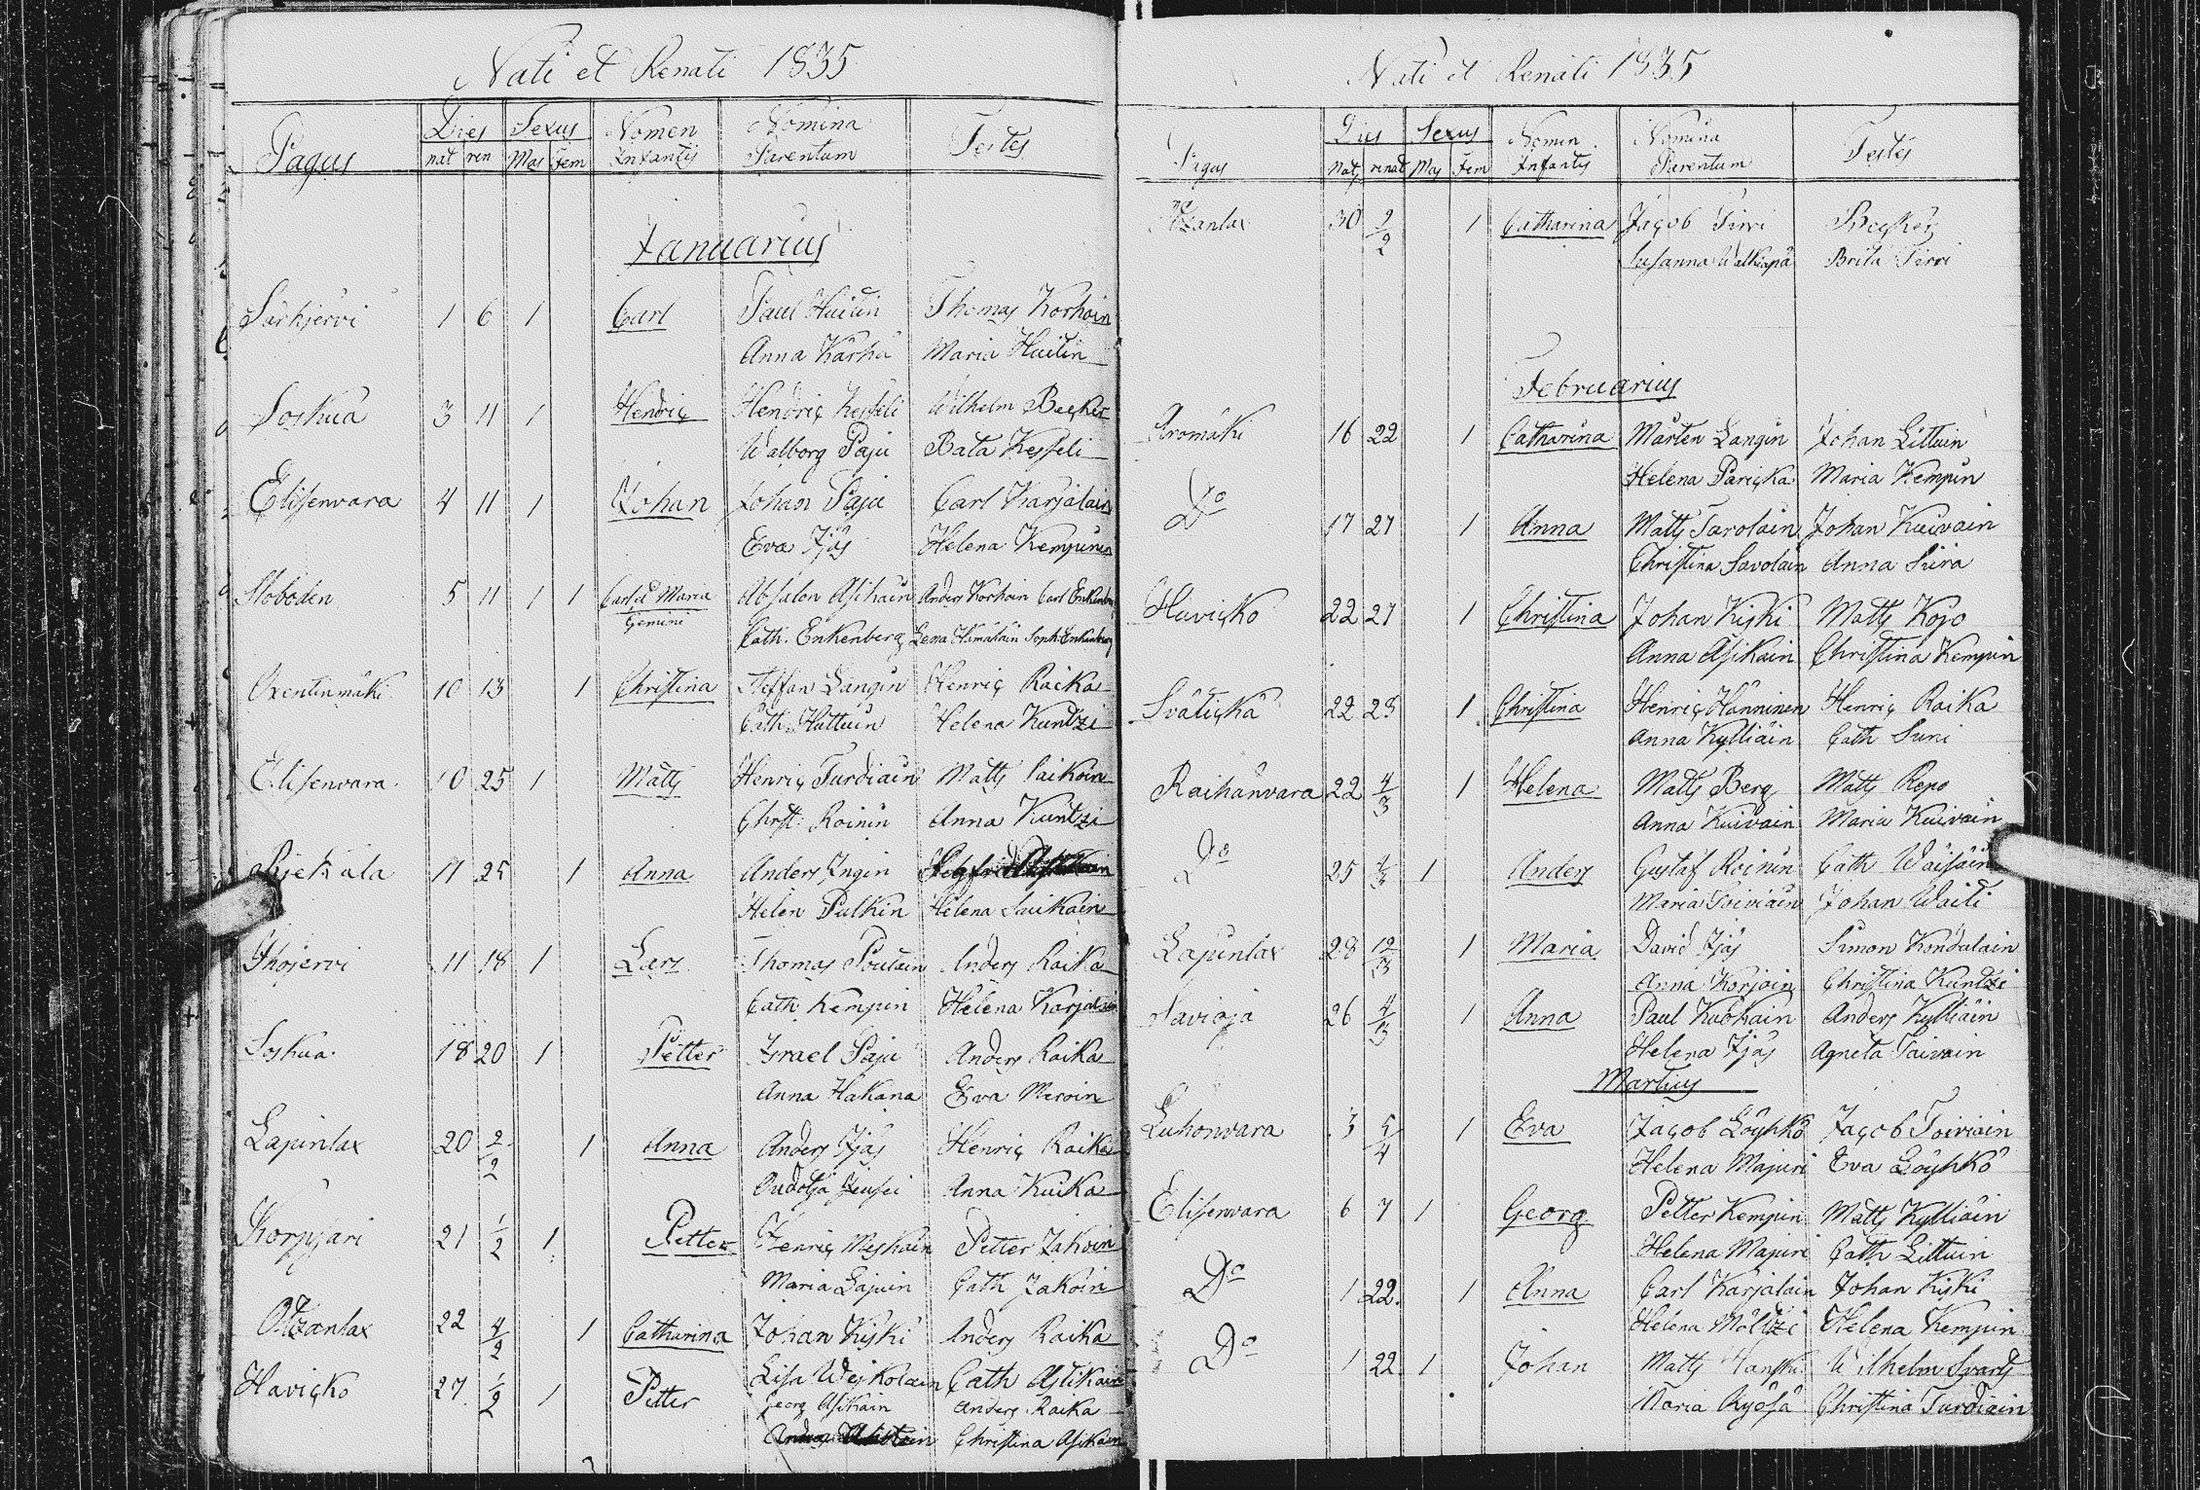 Nati et Renati 1835
Pagus Dies Sexus Nomen Nomina Testes
nat ren Mas Fem Infantis Parentum
Januarius
Särkjervi 1 6 1 Carl Paul Huitin Thomas Korhoin
Anna Kärhä Maria Huitin
Soskua 3 11 1 Hendric Hendric Kesseli Wilhelm Becker
Walborg Paju Beata Kesseli
Elisenvara 4 11 1 Johan Johan Paju Carl Karjalain
Eva Ijäs Helena Kempinen
Sloboden 5 11 1 1 Carl et Maria Absalon Asikain Anders Korhoin Carl Enkenberg
Gemini Cath. Enkenberg Lena Hämäläin Soph Enkenberg
Oxentinmäki 10 13 1 Christina Steffan Langin Henric Raika
Cath. Huttuin Helena Kuntzi
Elisenvara 10 25 1 Matts Henric Turdiain Matts Paikoin
Christ: Roinin Anna Kuntzi
Rjekala 11 25 1 Anna Anders Ingin
Helen Pulkin Helena Saikain
Ihojervi 11 18 1 Lars Thomas Poutain Anders Raika
Cath Kempin Helena Karjalain
Soskua 18 20 1 Petter Israel Paju Anders Raika
Anna Hakana Eva Meroin
Lapinlax 20 2/2 1 Anna Anders Ijäs Henric Raika
Anna Kuika
Korpjäri 21 1/2 1 Petter Henric Miskain Petter Jakoin
Maria Lajuin Cath Jakoin
Otzanlax 22 4/2 1 Catharina Johan Kiski Anders Raika
Lisa Weikolain Cath Asikain
Havicko 27 1/2 1 Petter Georg Asikain Anders Raika
Christina Asikain
Nati et Renati 1835
Pagus Dies Sexus Nomen Nomina Testes
Nat renat Mas Fem Infantis Parentum
Otzanlax 30 9/2 1 Catharina Jacob Pirri Becker
Susanna Valkiapä Brita Pirri
Februarius
Aromäki 16 22 1 Catharina Mårten Langin Johan Littuin
Helena Paricka Maria Kempin
Do 17 27 1 Anna Matts Tarolain Johan Kuivain
Christina Savolain Anna Siira
Havicko 22 27 1 Christina Johan Kiski Matts Kojo
Anna Asikain Christina Kempin
Sväticka 22 23 1 Christina Henric Hänninen Henric Raika
Anna Kylliäin Cath Suni
Raihänvara 22 4/3 1 Helena Matts Berg Matts Repo
Anna Kuivain Maria Kuivain
Do 25 1 Anders Gustaf Roinin Cath Waisäin
Maria Toiviain Johan Waiti
Lapinlax 28 12/3 1 Maria David Ijäs Simon Kondalain
Anna Korjoin Christina Kuntzi
Savioja 26 4/3 1 Anna Paul Kuokain Anders Kylliäin
Helena Ijäs Agneta Taivain
Martius
Luhonvara 3 5/4 1 Eva Jacob Löyhkö Jacob Toiviain
Helena Majuri Eva Löyhkö
Elisenvara 6 7 1 Georg Petter Kempin Matts Kylliäin
Helena Majuri Cath Littuin
Do 1 22 1 Anna Carl Karjalain Johan Kiski
Helena Möltzi Helena Kempin
Do 1 22 1 Johan Matts Hanski Wilhelm Svarts
Maria Ryösä Christina Turdiain